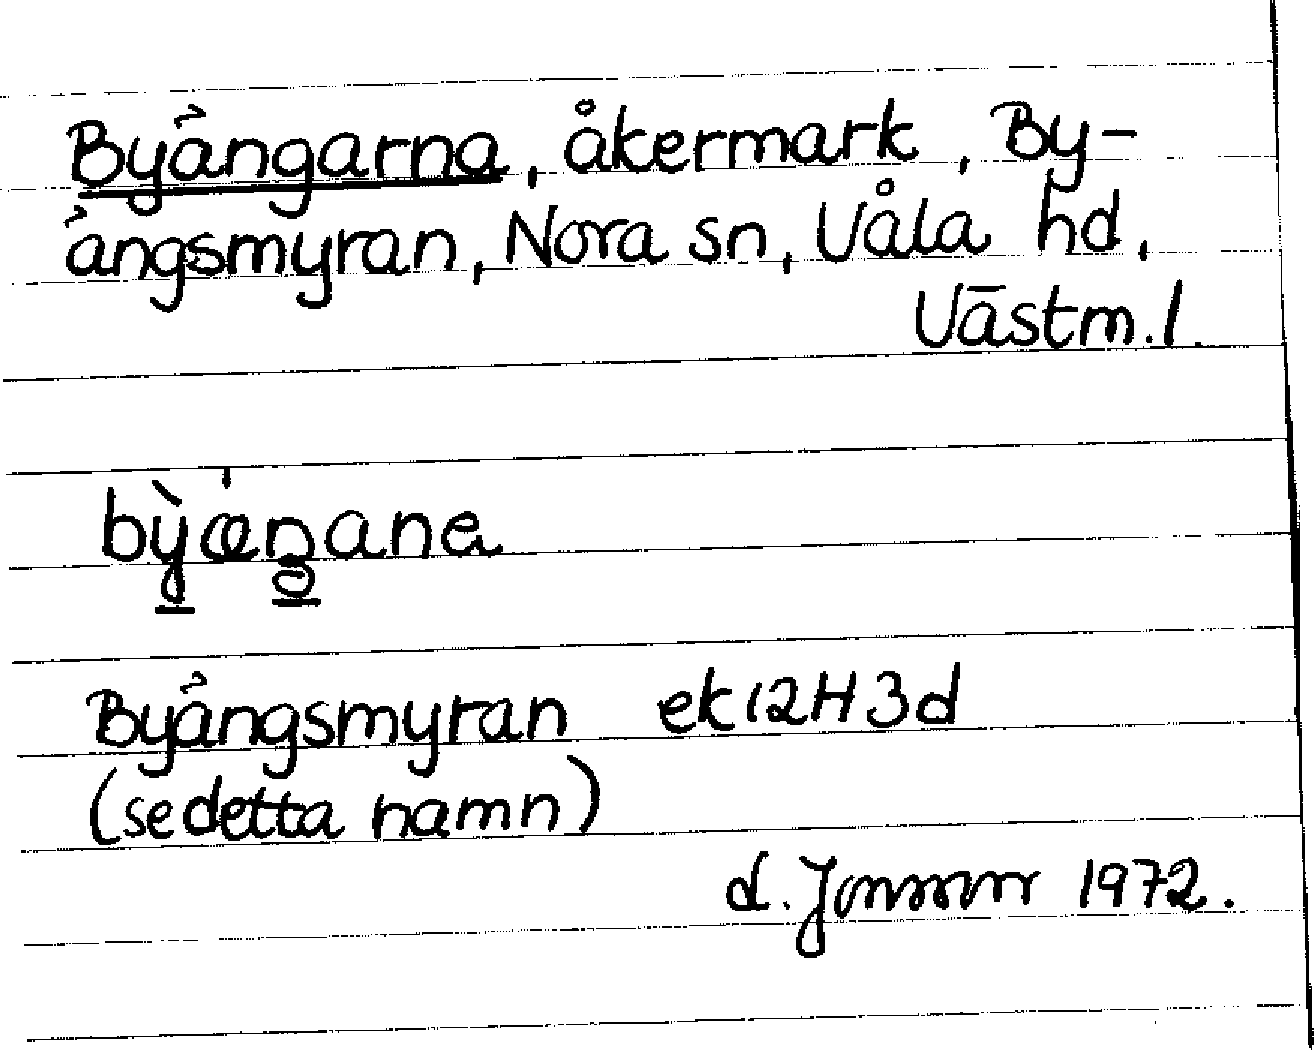 Byängarna, åkermark, By-
ängsmyran, Nora sn, Våla hd,
Västm.l.
bỳ̲æ̍ŋ̲ana
Byängsmyran ek 12H3d
(se detta namn)
1972.